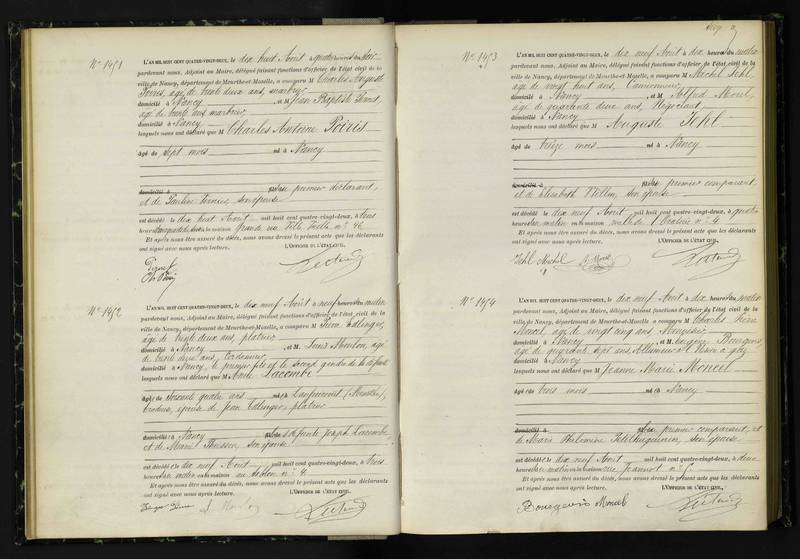 N° 1451
L'AN MIL HUIT CENT QUATRE-VINGT-DEUX, le dix huit Août à quatre heures du soir
pardevant nous, Adjoint au Maire, délégué faisant fonctions d'officier de l'état civil de la
ville de Nancy, département de Meurthe-et-Moselle, a comparu M Charles Auguste
Poiris, âgé de trente deux ans, marbrier
domicilié à Nancy et M Jean Baptiste
âgé de trente ans marbrier
domicilié à Nancy
lesquels nous ont déclaré que M Charles Antoine Poiris
âgé de sept mois né à Nancy
domicilié à fils du premier déclarant,
et de Pauline son épouse
est décédé le dix huit Août mil huit cent quatre-vingt-deux, à trois
heures en la maison Grande rue Ville Vieille n° 46
Et après nous être assuré du décès, nous avons dressé le présent acte que les déclarants
ont signé avec nous après lecture. L'OFFICIER DE L'ÉTAT CIVIL,
N° 1452
L'AN MIL HUIT CENT QUATRE-VINGT-DEUX, le dix neuf Août à neuf heures du matin
pardevant nous, Adjoint au Maire, délégué faisant fonctions d'officier de l'état civil de la
ville de Nancy, département de Meurthe-et-Moselle, a comparu M
âgé de trente deux ans, platrier
domicilié à Nancy et M. Louis
âgé de trente deux ans, Cordonnier
domicilié à Nancy, le premier fils et le second gendre de la défunte
lesquels nous ont déclaré que M Lacombe
âgée de Soixante quatre ans née à
épouse de Jean platrier
domiciliée à Nancy fille de défunts Joseph Lacombe
et de son épouse
est décédée le dix neuf Août mil huit cent quatre-vingt-deux, à trois
heures du matin en la maison n° 4
Et après nous être assuré du décès, nous avons dressé le présent acte que les déclarants
ont signé avec nous après lecture. L'OFFICIER DE L'ÉTAT CIVIL,
N° 1453
L'AN MIL HUIT CENT QUATRE-VINGT-DEUX, le dix neuf Août à dix heures du matin
pardevant nous, Adjoint au Maire, délégué faisant fonctions d'officier de l'état civil de la
ville de Nancy, département de Meurthe-et-Moselle, a comparu M Michel Ichl,
âgé de vingt huit ans, Camionneur
domicilié à Nancy et M Alfred Morel
âgé de quarante deux ans, Négociant
domicilié à Nancy
lesquels nous ont déclaré que M Auguste Ichl
âgé de treize mois né à Nancy
domicilié à fils du premier comparant
et de Elisabeth son épouse
est décédé le dix neuf Août mil huit cent quatre-vingt-deux, à quatre
heures du matin en la maison rue de l'Oratoire n° 4
Et après nous être assuré du décès, nous avons dressé le présent acte que les déclarants
ont signé avec nous après lecture. L'OFFICIER DE L'ÉTAT CIVIL,
Ichl Michel A. Morel
N° 1454
L'AN MIL HUIT CENT QUATRE-VINGT-DEUX, le dix neuf Août à dix heures du matin
pardevant nous, Adjoint au Maire, délégué faisant fonctions d'officier de l'état civil de la
ville de Nancy, département de Meurthe-et-Moselle, a comparu M Charles
Moncel âgé de vingt cinq ans, Menuisier
domicilié à Nancy et M. Eugène Bourgeois,
âgé de quarante sept ans, Allumeur
domicilié à Nancy
lesquels nous ont déclaré que M Jeanne Marie Moncel
âgée de trois mois née à Nancy
domiciliée à fille du premier comparant, et
de Marie Philomène son épouse
est décédée le dix neuf Août mil huit cent quatre-vingt-deux, à deux
heures du matin en la maison rue Jeannot n° 5
Et après nous être assuré du décès, nous avons dressé le présent acte que les déclarants
ont signé avec nous après lecture. L'OFFICIER DE L'ÉTAT CIVIL,
Bourgeois Moncel